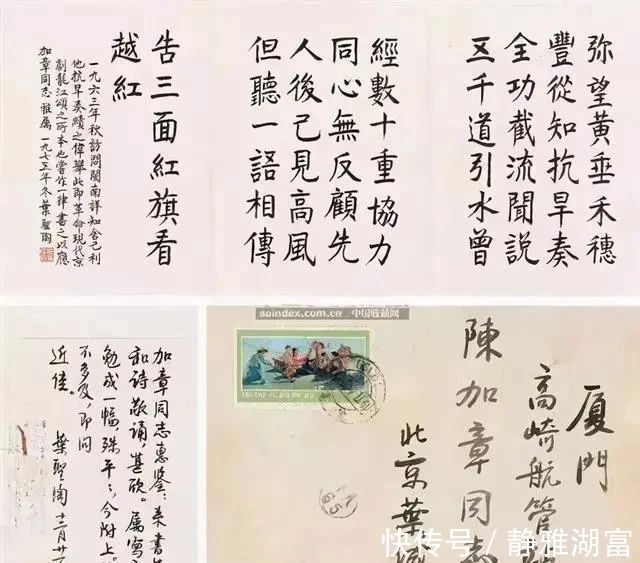 弥望黄垂禾穗
豐從知抗旱奏
全功截流聞說
五千道引水曾
經數十重協力
同心無反顧先
人後己見高風
但聽一語相傳
告三面紅旗看
越紅
一九六三年秋訪問閩南詳知舍己利
他抗旱奏績之偉舉此即革命現代京
劇龍江頌之所本也嘗作一律書之以應
加章同志雅屬 一九七五年冬葉聖陶
saindex.com.cn 中国收藏网
加章同志惠鑒：来書
和詩敬诵，甚欣。屬寫
勉成一幅，殊平平，今附上。
不多及，即問
近佳。
葉聖陶 十二月廿
厦門
高崎航管
陳加章同志
北京葉
快传号 / 静雅湖富